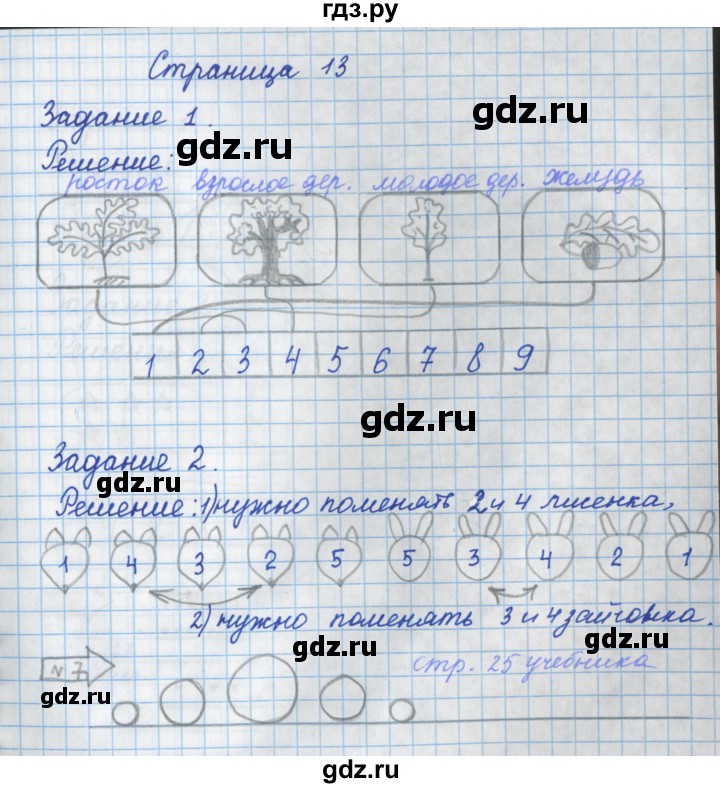 гдз.ру
Страница 13
Задание 1.
gdz.ru
gdz.ru
Решение:
росток взрослое дер. молодое дер. желудь
1 2 3 4 5 6 7 8 9
gdz.ru
Задание 2.
gdz.ru
Решение: 1) нужно поменять 2 и 4 лисенка,
1 4 3 2 5 5 3 4 2 1
2) нужно поменять 3 и 4 зайчонка.
gdz.ru
gdz.ru
N 7
стр. 25 учебника
gdz.ru
gdz.ru